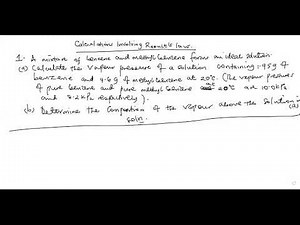 Calculations Involving Raoult's law.
1. A mixture of benzene and methylbenzene forms an ideal solution.
(a) Calculate the vapour pressure of a solution containing 1.95g of
benzene and 4.6g of methylbenzene at 20°C. (The vapour pressures
of pure benzene and pure methylbenzene 20°C are 10.0kPa
and 3.2kPa respectively).
(b) Determine the composition of the vapour above the solution in (a)
soln.